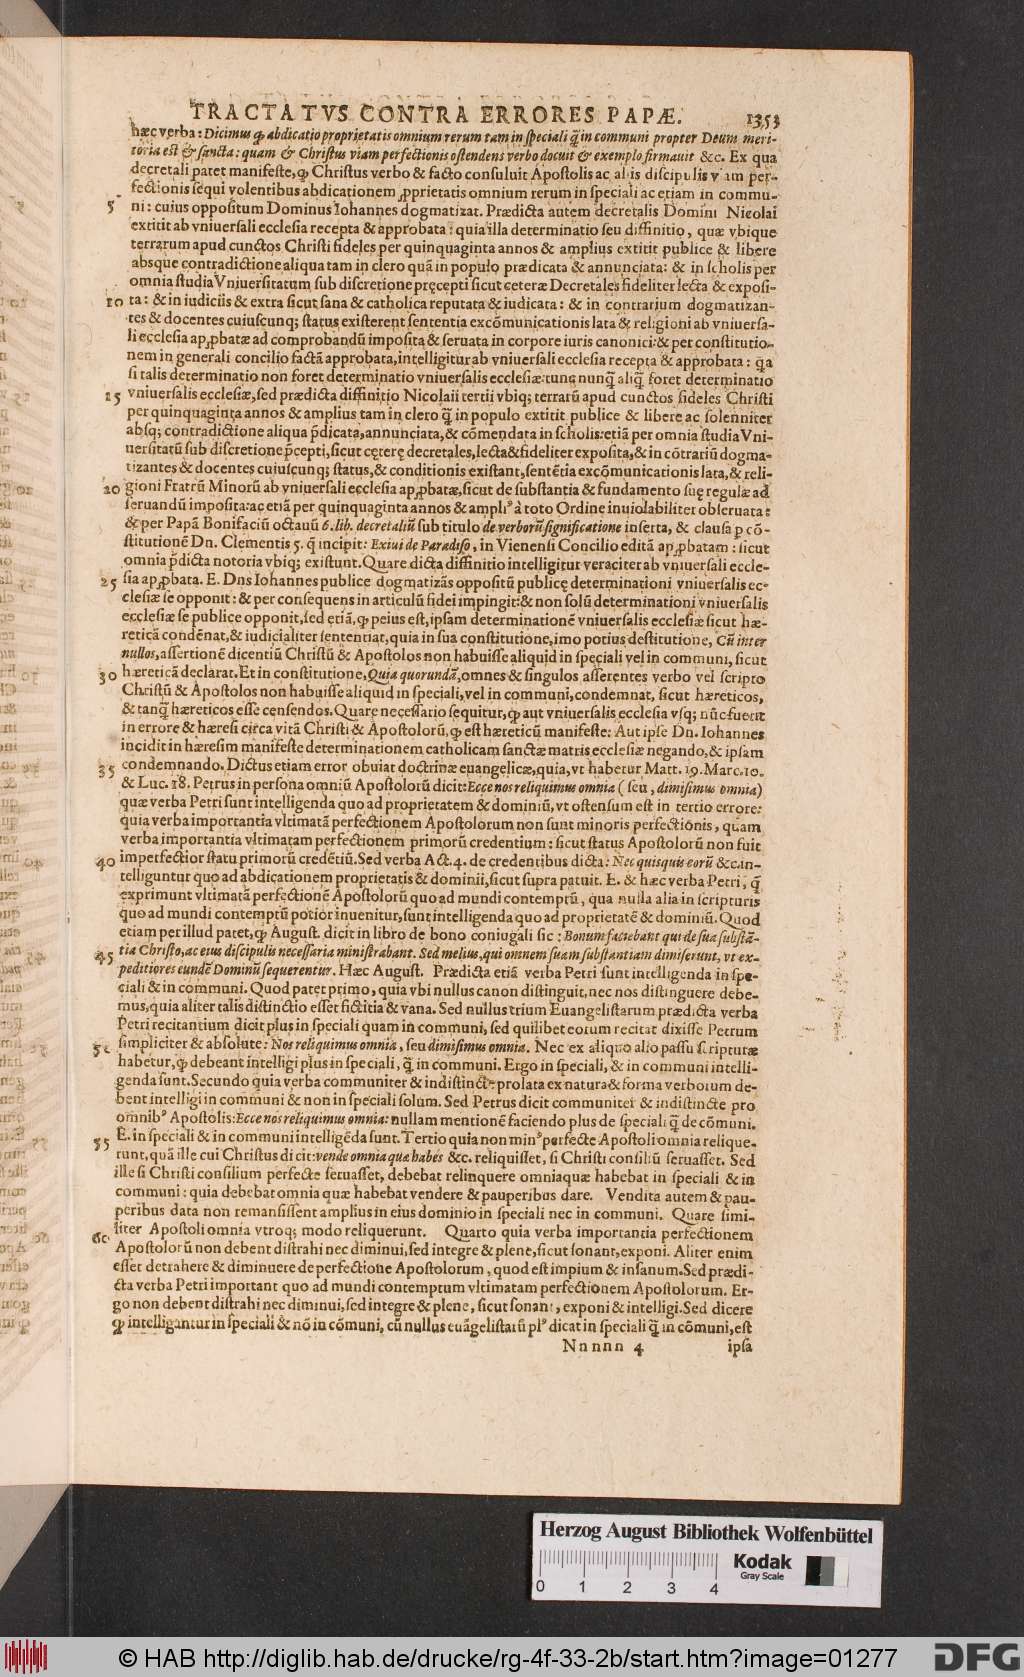 TRACTATVS CONTRA ERRORES PAPÆ. 1353
hæc verba: Dicimus ꝙ abdicatio proprietatis omnium rerum tam in speciali q̃ in communi propter Deum meri-
toria est & sancta: quam & Christus viam perfectionis ostendens verbo docuit & exemplo firmauit &c. Ex qua
decretali patet manifeste, ꝙ Christus verbo & facto consuluit Apostolis ac aliis discipulis viam per-
fectionis sequi volentibus abdicationem ꝓprietatis omnium rerum in speciali ac etiam in commu-
5 ni: cuius oppositum Dominus Iohannes dogmatizat. Prædicta autem decretalis Domini Nicolai
extitit ab vniuersali ecclesia recepta & approbata: quia illa determinatio seu diffinitio, quæ vbique
terrarum apud cunctos Christi fideles per quinquaginta annos & amplius extitit publice & libere
absque contradictione aliqua tam in clero quã in populo prædicata & annunciata: & in scholis per
omnia studia Vniuersitatum sub discretione pręcepti sicut ceteræ Decretales fideliter lecta & exposi-
10 ta: & in iudiciis & extra sicut sana & catholica reputata & iudicata: & in contrarium dogmatizan-
tes & docentes cuiuscunq; status existerent sententia excõmunicationis lata & religioni ab vniuersa-
li ecclesia apꝓbatæ ad comprobandũ imposita & seruata in corpore iuris canonici: & per constitutio-
nem in generali concilio factã approbata, intelligitur ab vniuersali ecclesia recepta & approbata: q̃a
si talis determinatio non foret determinatio vniuersalis ecclesiæ: tunc nunq̃ aliq̃ foret determinatio
15 vniuersalis ecclesiæ, sed prædicta diffinitio Nicolaii tertii vbiq; terrarũ apud cunctos fideles Christi
per quinquaginta annos & amplius tam in clero q̃ in populo extitit publice & libere ac solenniter
absq; contradictione aliqua p̃dicata, annunciata, & cõmendata in scholis: etiã per omnia studia Vni-
uersitatũ sub discretione p̃cepti, sicut cęterę decretales, lecta & fideliter exposita, & in cõtrariũ dogma-
tizantes & docentes cuiuscunq; status, & conditionis existant, sentẽtia excõmunicationis lata, & reli-
20 gioni Fratrũ Minorũ ab vniuersali ecclesia apꝓbatæ, sicut de substantia & fundamento suę regulæ ad
seruandũ imposita: ac etiã per quinquaginta annos & ampliꝰ à toto Ordine inuiolabiliter obseruata:
& per Papã Bonifaciũ octauũ 6. lib. decretaliũ sub titulo de verborũ significatione inserta, & clausa ꝑ cõ-
stitutionẽ Dn. Clementis 5. q̃ incipit: Exiui de Paradiso, in Vienensi Concilio editã apꝓbatam: sicut
omnia p̃dicta notoria vbiq; existunt. Quare dicta diffinitio intelligitur veraciter ab vniuersali eccle-
25 sia apꝓbata. E. Dns Iohannes publice dogmatizãs oppositũ publicę determinationi vniuersalis ec-
clesiæ se opponit: & per consequens in articulũ fidei impingit: & non solũ determinationi vniuersalis
ecclesiæ se publice opponit, sed etiã, ꝙ peius est, ipsam determinationẽ vniuersalis ecclesiæ sicut hæ-
reticã condẽnat, & iudicialiter sententiat, quia in sua constitutione, imo potius destitutione, Cũ inter
nullos, assertionẽ dicentiũ Christũ & Apostolos non habuisse aliquid in speciali vel in communi, sicut
30 hæreticã declarat. Et in constitutione, Quia quorundã, omnes & singulos asserentes verbo vel scripto
Christũ & Apostolos non habuisse aliquid in speciali, vel in communi, condemnat, sicut hæreticos,
& tanq̃ hæreticos esse censendos. Quare necessario sequitur, ꝙ aut vniuersalis ecclesia vsq; nũc fuerit
in errore & hæresi circa vitã Christi & Apostolorũ, ꝙ est hæreticũ manifeste: Aut ipse Dn. Iohannes
incidit in hæresim manifeste determinationem catholicam sanctæ matris ecclesiæ negando, & ipsam
35 condemnando. Dictus etiam error obuiat doctrinæ euangelicæ, quia, vt habetur Matt. 19. Marc. 10.
& Luc. 18. Petrus in persona omniũ Apostolorũ dicit: Ecce nos reliquimus omnia (seu, dimisimus omnia)
quæ verba Petri sunt intelligenda quo ad proprietatem & dominiũ, vt ostensum est in tertio errore:
quia verba importantia vltimatã perfectionem Apostolorum non sunt minoris perfectionis, quam
verba importantia vltimatam perfectionem primorũ credentium: sicut status Apostolorũ non fuit
40 imperfectior statu primorũ credẽtiũ. Sed verba Act. 4. de credentibus dicta: Nec quisquis eorũ &c. in-
telliguntur quo ad abdicationem proprietatis & dominii, sicut supra patuit. E. & hæc verba Petri, q̃
exprimunt vltimatã perfectionẽ Apostolorũ quo ad mundi contemptũ, qua nulla alia in scripturis
quo ad mundi contemptũ potior inuenitur, sunt intelligenda quo ad proprietatẽ & dominiũ. Quod
etiam per illud patet, ꝙ August. dicit in libro de bono coniugali sic: Bonum faciebant qui de sua substã-
45 tia Christo, ac eius discipulis necessaria ministrabant. Sed melius, qui omnem suam substantiam dimiserunt, vt ex-
peditiores eundẽ Dominũ sequerentur. Hæc August. Prædicta etiã verba Petri sunt intelligenda in spe-
ciali & in communi. Quod patet primo, quia vbi nullus canon distinguit, nec nos distinguere debe-
mus, quia aliter talis distinctio esset fictitia & vana. Sed nullus trium Euangelistarum prædicta verba
Petri recitantium dicit plus in speciali quam in communi, sed quilibet eorum recitat dixisse Petrum
50 simpliciter & absolute: Nos reliquimus omnia, seu dimisimus omnia. Nec ex aliquo alio passu scripturæ
habetur, ꝙ debeant intelligi plus in speciali, q̃ in communi. Ergo in speciali, & in communi intelli-
genda sunt. Secundo quia verba communiter & indistincte prolata ex natura & forma verborum de-
bent intelligi in communi & non in speciali solum. Sed Petrus dicit communiter & indistincte pro
omnibꝰ Apostolis: Ecce nos reliquimus omnia: nullam mentionẽ faciendo plus de speciali q̃ de cõmuni.
55 E. in speciali & in communi intelligẽda sunt. Tertio quia non minꝰ perfecte Apostoli omnia relique-
runt, quã ille cui Christus dicit: vende omnia quæ habes &c. reliquisset, si Christi consiliũ seruasset. Sed
ille si Christi consilium perfecte seruasset, debebat relinquere omnia quæ habebat in speciali & in
communi: quia debebat omnia quæ habebat vendere & pauperibus dare. Vendita autem & pau-
peribus data non remansissent amplius in eius dominio in speciali nec in communi. Quare simi-
60 liter Apostoli omnia vtroq; modo reliquerunt. Quarto quia verba importantia perfectionem
Apostolorũ non debent distrahi nec diminui, sed integre & plene, sicut sonant, exponi. Aliter enim
esset detrahere & diminuere de perfectione Apostolorum, quod est impium & insanum. Sed prædi-
cta verba Petri important quo ad mundi contemptum vltimatam perfectionem Apostolorum. Er-
go non debent distrahi nec diminui, sed integre & plene, sicut sonant, exponi & intelligi. Sed dicere
ꝙ intelligantur in speciali & nõ in cõmuni, cũ nullus euãgelistarũ plꝰ dicat in speciali q̃ in cõmuni, est
Nnnnn 4 ipsa
Herzog August Bibliothek Wolfenbüttel
0 1 2 3 4
Kodak
Gray Scale
© HAB http://diglib.hab.de/drucke/rg-4f-33-2b/start.htm?image=01277
DFG